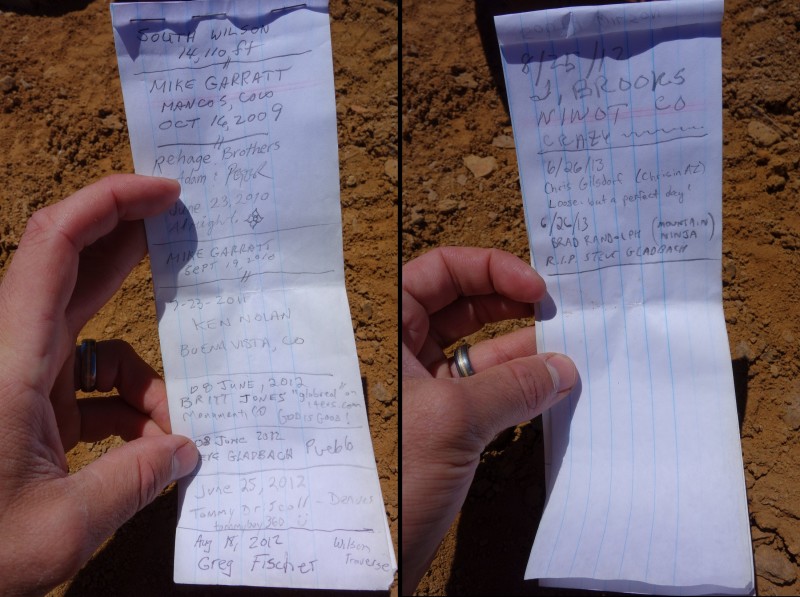 SOUTH WILSON
14,110 ft
MIKE GARRATT
MANCOS, COLO
OCT 16, 2009
Rehage Brothers
Adam &
June 23, 2010
MIKE GARRATT
SEPT 19, 2010
7-23-2011
KEN NOLAN
BUENA VISTA, CO
08 JUNE, 2012
BRITT JONES "globreal" on
14ers.com
Monument, CO GOD IS GOOD!
08 JUNE 2012
GLADBACH Pueblo
June 25, 2012
Tommy Driscoll - Denver
tommyboy360
Aug 18, 2012 Wilson
Greg Fischer Traverse
8/25/12
J. BROOKS
NIWOT CO
CRAZY
6/26/13
Chris Gilsdorf (Chris in AZ)
Loose but a perfect day!
6/26/13
BRAD RANDOLPH (MOUNTAIN NINJA)
R.I.P. STEVE GLADBACH